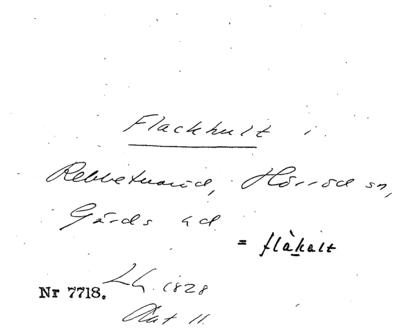 Flackhult i
Rebbetuaröd, Hörröd sn,
Gärds hd
= flàkalt
Nr 7718. LG. 1828
Akt 11.